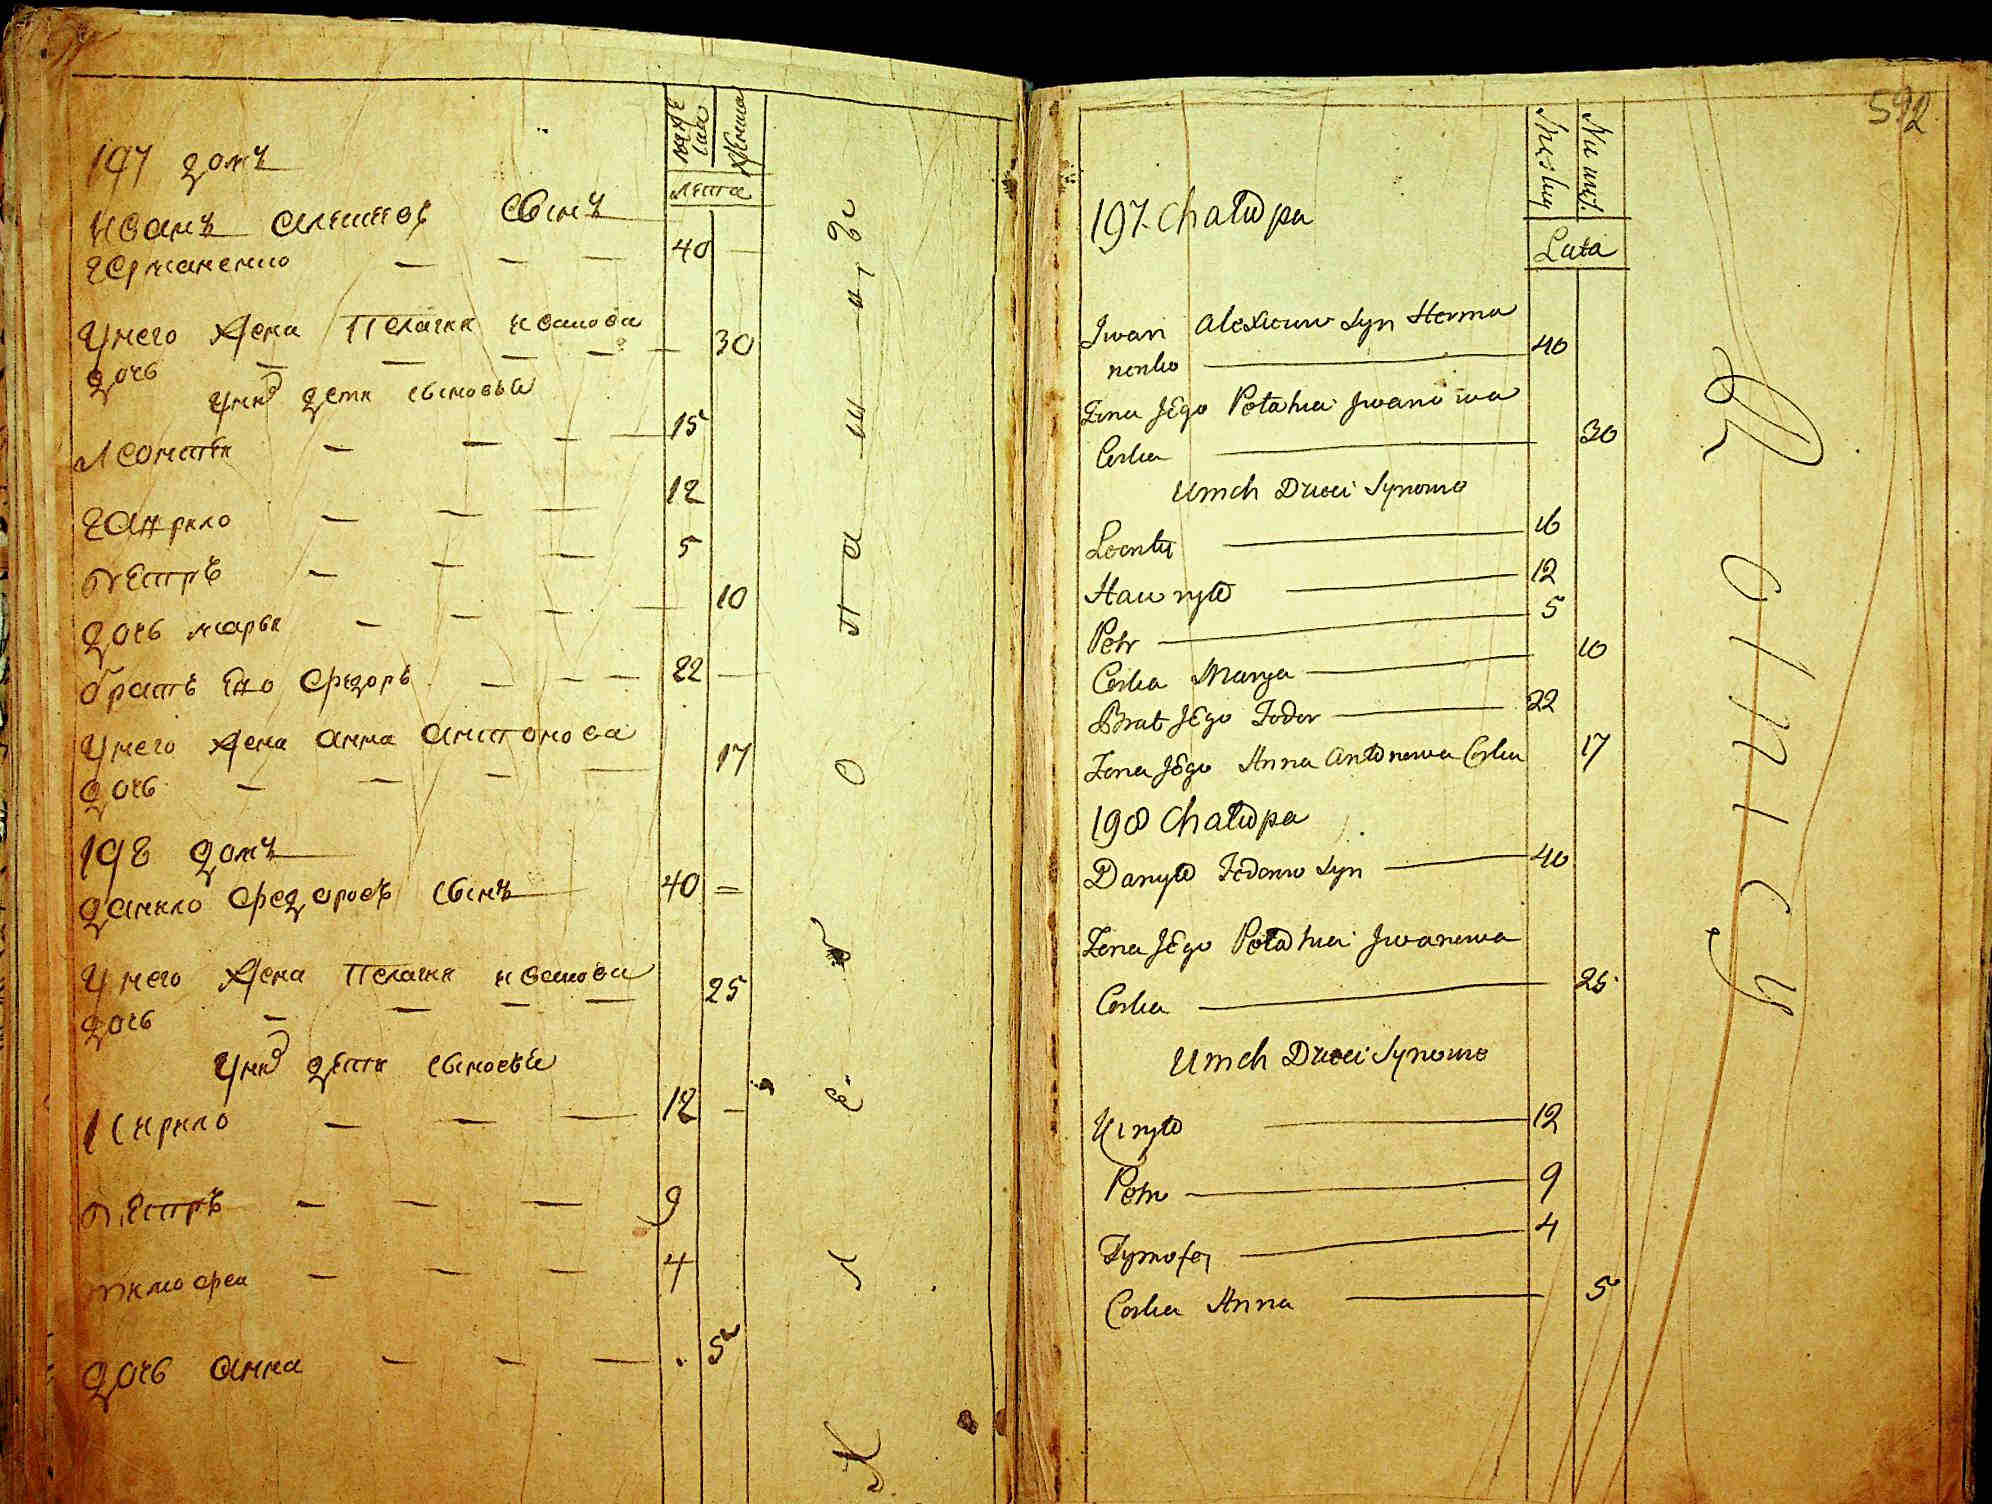 мужеска
женска
лета
197 домъ
иванъ алексеевъ сынъ
германенко 40
у него жена Пелагия иванова
дочь 30
у них дети сыновья
леонтеи 15
гаврило 12
петръ 5
дочь марья 10
братъ его федоръ 22
у него жена анна антонова
дочь 17
198 домъ
данило федоровъ сынъ 40
у него жена Пелагия иванова
дочь 25
у них дети сыновья
кирило 12
петръ 9
тимофеи 4
дочь анна 5
592
Lata
197. Chałupa
Jwan Alexieiuw Syn Herma
nenko 40
Żona JEgo Pełahia Jwanowa
Corka 30
U nich Dzieci Synowie
Leonty 16
Hawryło 12
Petr 5
Corka Marya 10
Brat JEgo Fedor 22
Żona JEgo Anna Antonowa Corka 17
198 Chałupa
Danyło Fedorow Syn 40
Żona JEgo Pełahia Jwanowa
Corka 25
U nich Dzieci Synowie
Kiryło 12
Petr 9
Tymofey 4
Corka Anna 5